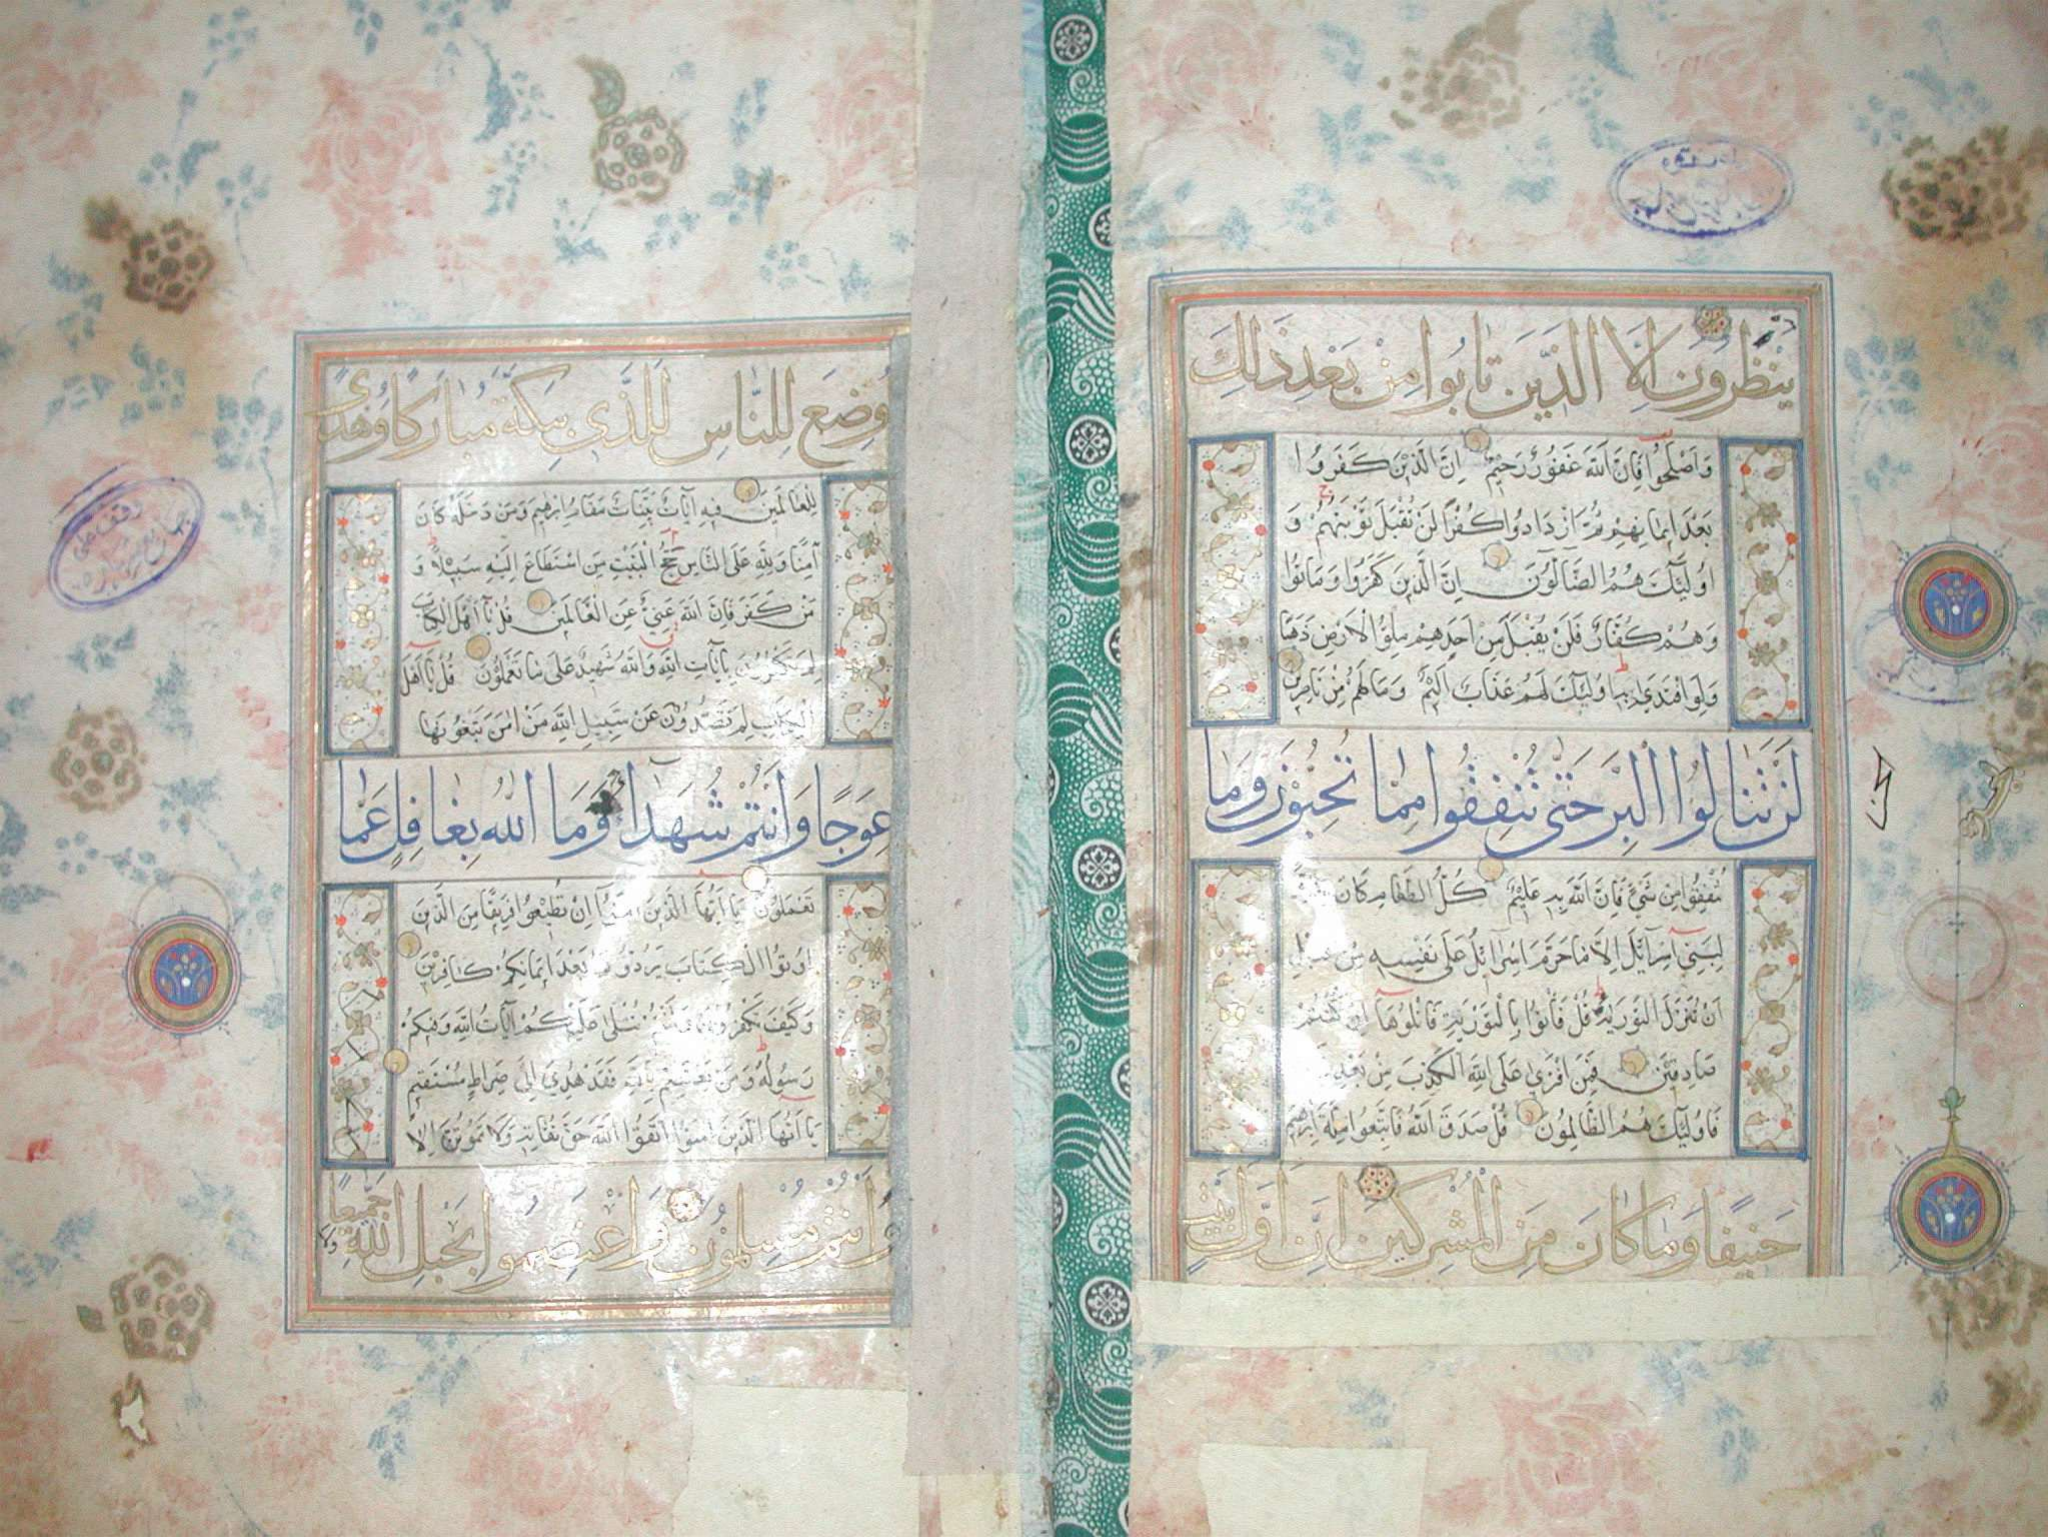 ينظرون الا الذين تابوا من بعد ذلك
واصلحوا فان الله غفور رحيم ان الذين كفروا
بعد ايمانهم ثم ازدادوا كفرا لن تقبل توبتهم و
اولئك هم الضالون ان الذين كفروا وماتوا
وهم كفار فلن يقبل من احدهم ملؤ الارض ذهبا
ولو افتدى به اولئك لهم عذاب اليم وما لهم من ناصرين
لن تنالوا البر حتى تنفقوا مما تحبون وما
تنفقوا من شئ فان الله به عليم كل الطعام كان
لبني اسرآئل الا ما حرم اسرآئل على نفسه من قبل
ان تنزل التورية قل فأتوا بالتورية فاتلوها ان كنتم
صادقين فمن افترى على الله الكذب من بعد
فاولئك هم الظالمون قل صدق الله فاتبعوا ملة ابرهيم
حنيفا وما كان من المشركين ان اول بيت
وضع للناس للذى ببكة مباركا وهدى
للعالمين فيه آيات بينات مقام ابرهيم ومن دخله كان
آمنا ولله على الناس حج البيت من استطاع اليه سبيلا و
من كفر فان الله غني عن العالمين قل يا اهل الكتاب
لم تكفرون بآيات الله والله شهيد على ما تعملون قل يا اهل
الكتاب لم تصدون عن سبيل الله من امن تبغونها
عوجا وانتم شهدا وما الله بغافل عما
تعملون يا ايها الذين امنوا ان تطيعوا فريقا من الذين
اوتوا الكتاب يردوكم بعد ايمانكم كافرين
وكيف تكفرون وانتم تتلى عليكم آيات الله وفيكم
رسوله ومن يعتصم بالله فقد هدي الى صراط مستقيم
يا ايها الذين امنوا اتقوا الله حق تقاته ولا تموتن الا
وانتم مسلمون واعتصموا بحبل الله جميعا
ولا